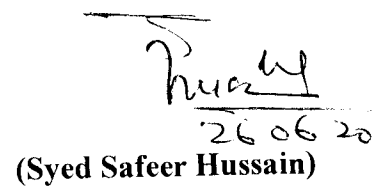 26 06 20
(Syed Safeer Hussain)